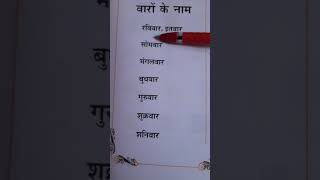 वारों के नाम
रविवार, इतवार
सोमवार
मंगलवार
बुधवार
गुरुवार
शुक्रवार
शनिवार